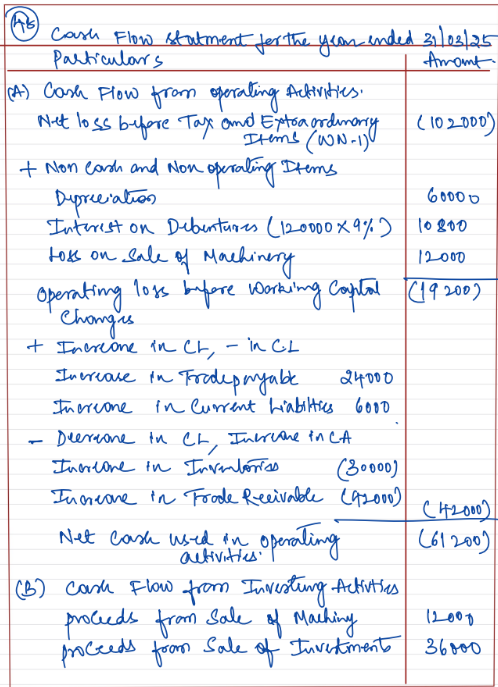 45
Cash Flow statment for the year ended 31/03/25
Particulars Amount
(A) Cash Flow from operating Activities.
Net loss before Tax and Extraordinary (102000)
Items (WN-1)
+ Non cash and Non operating Items
Depreciation 60000
Interest on Debentures (120000 x 9%) 10800
Loss on Sale of Machinery 12000
Operating loss before Working Capital (19200)
Changes
+ Increase in CL, - in CL
Increase in Trade payable 24000
Increase in Current Liabilities 6000
- Decrease in CL, Increase in CA
Increase in Inventories (30000)
Increase in Trade Receivable (42000)
(42000)
Net Cash used in operating (61200)
activities.
(B) Cash Flow from Investing Activities
proceeds from Sale of Machiny 12000
proceeds from Sale of Investments 36000